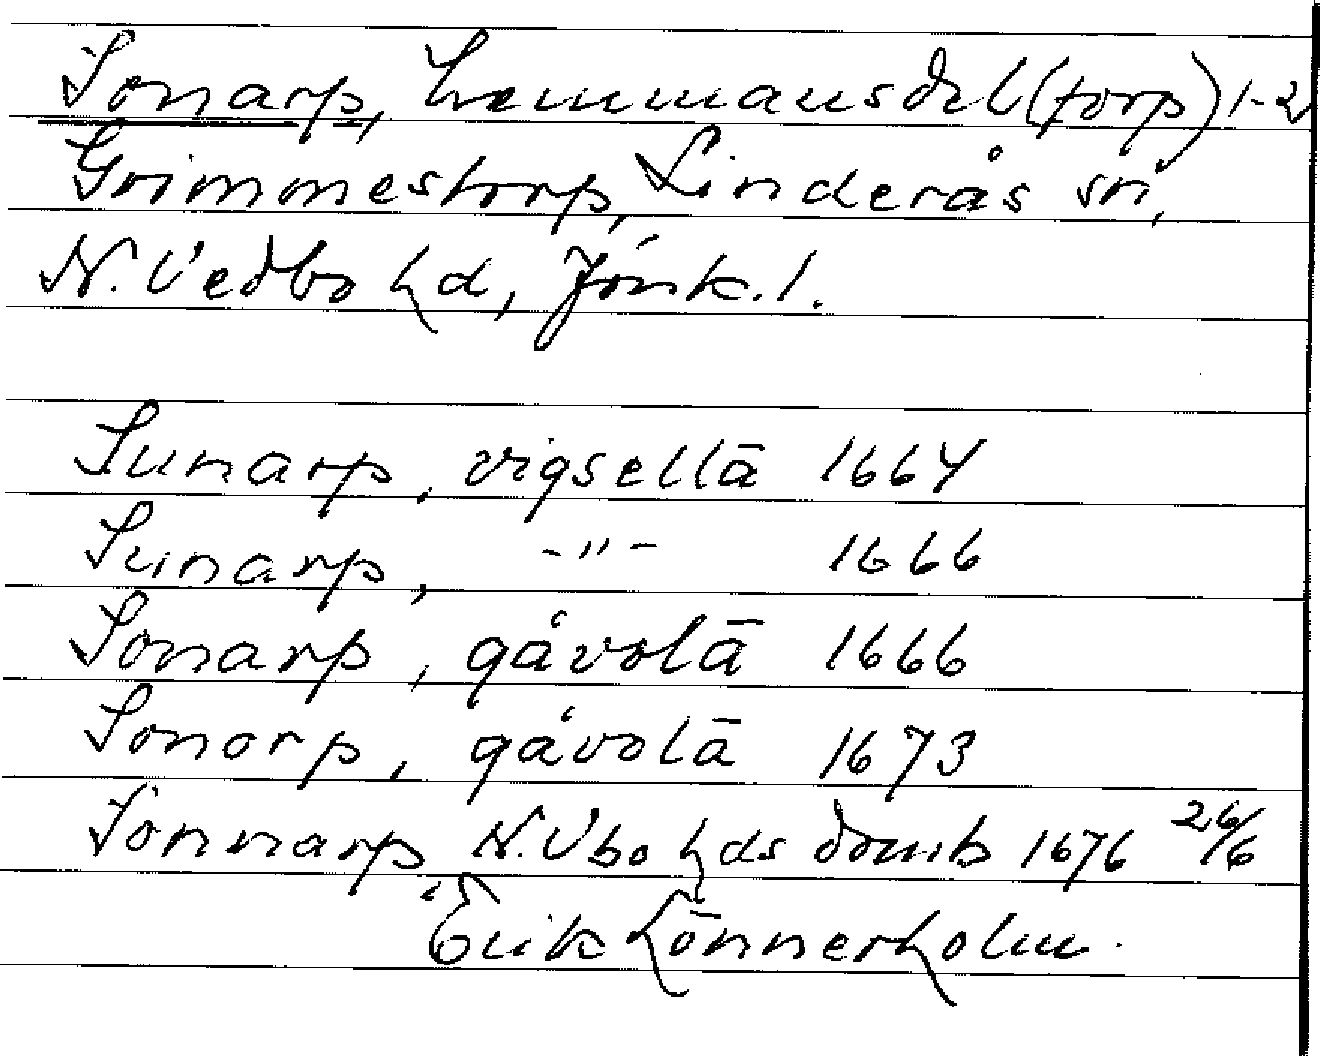 Sonarp, hemmansdel (torp) 1-2
Grimmestorp, Linderås sn,
N. Vedbo hd, Jönk. l.
Sunarp, vigsellä 1664
Sunarp, -"- 1666
Sonarp, gåvolä 1666
Sonorp, gåvolä 1673
Sonnarp, N. Vbo hds domb 1676 26/6
Erik Lönnerholm.